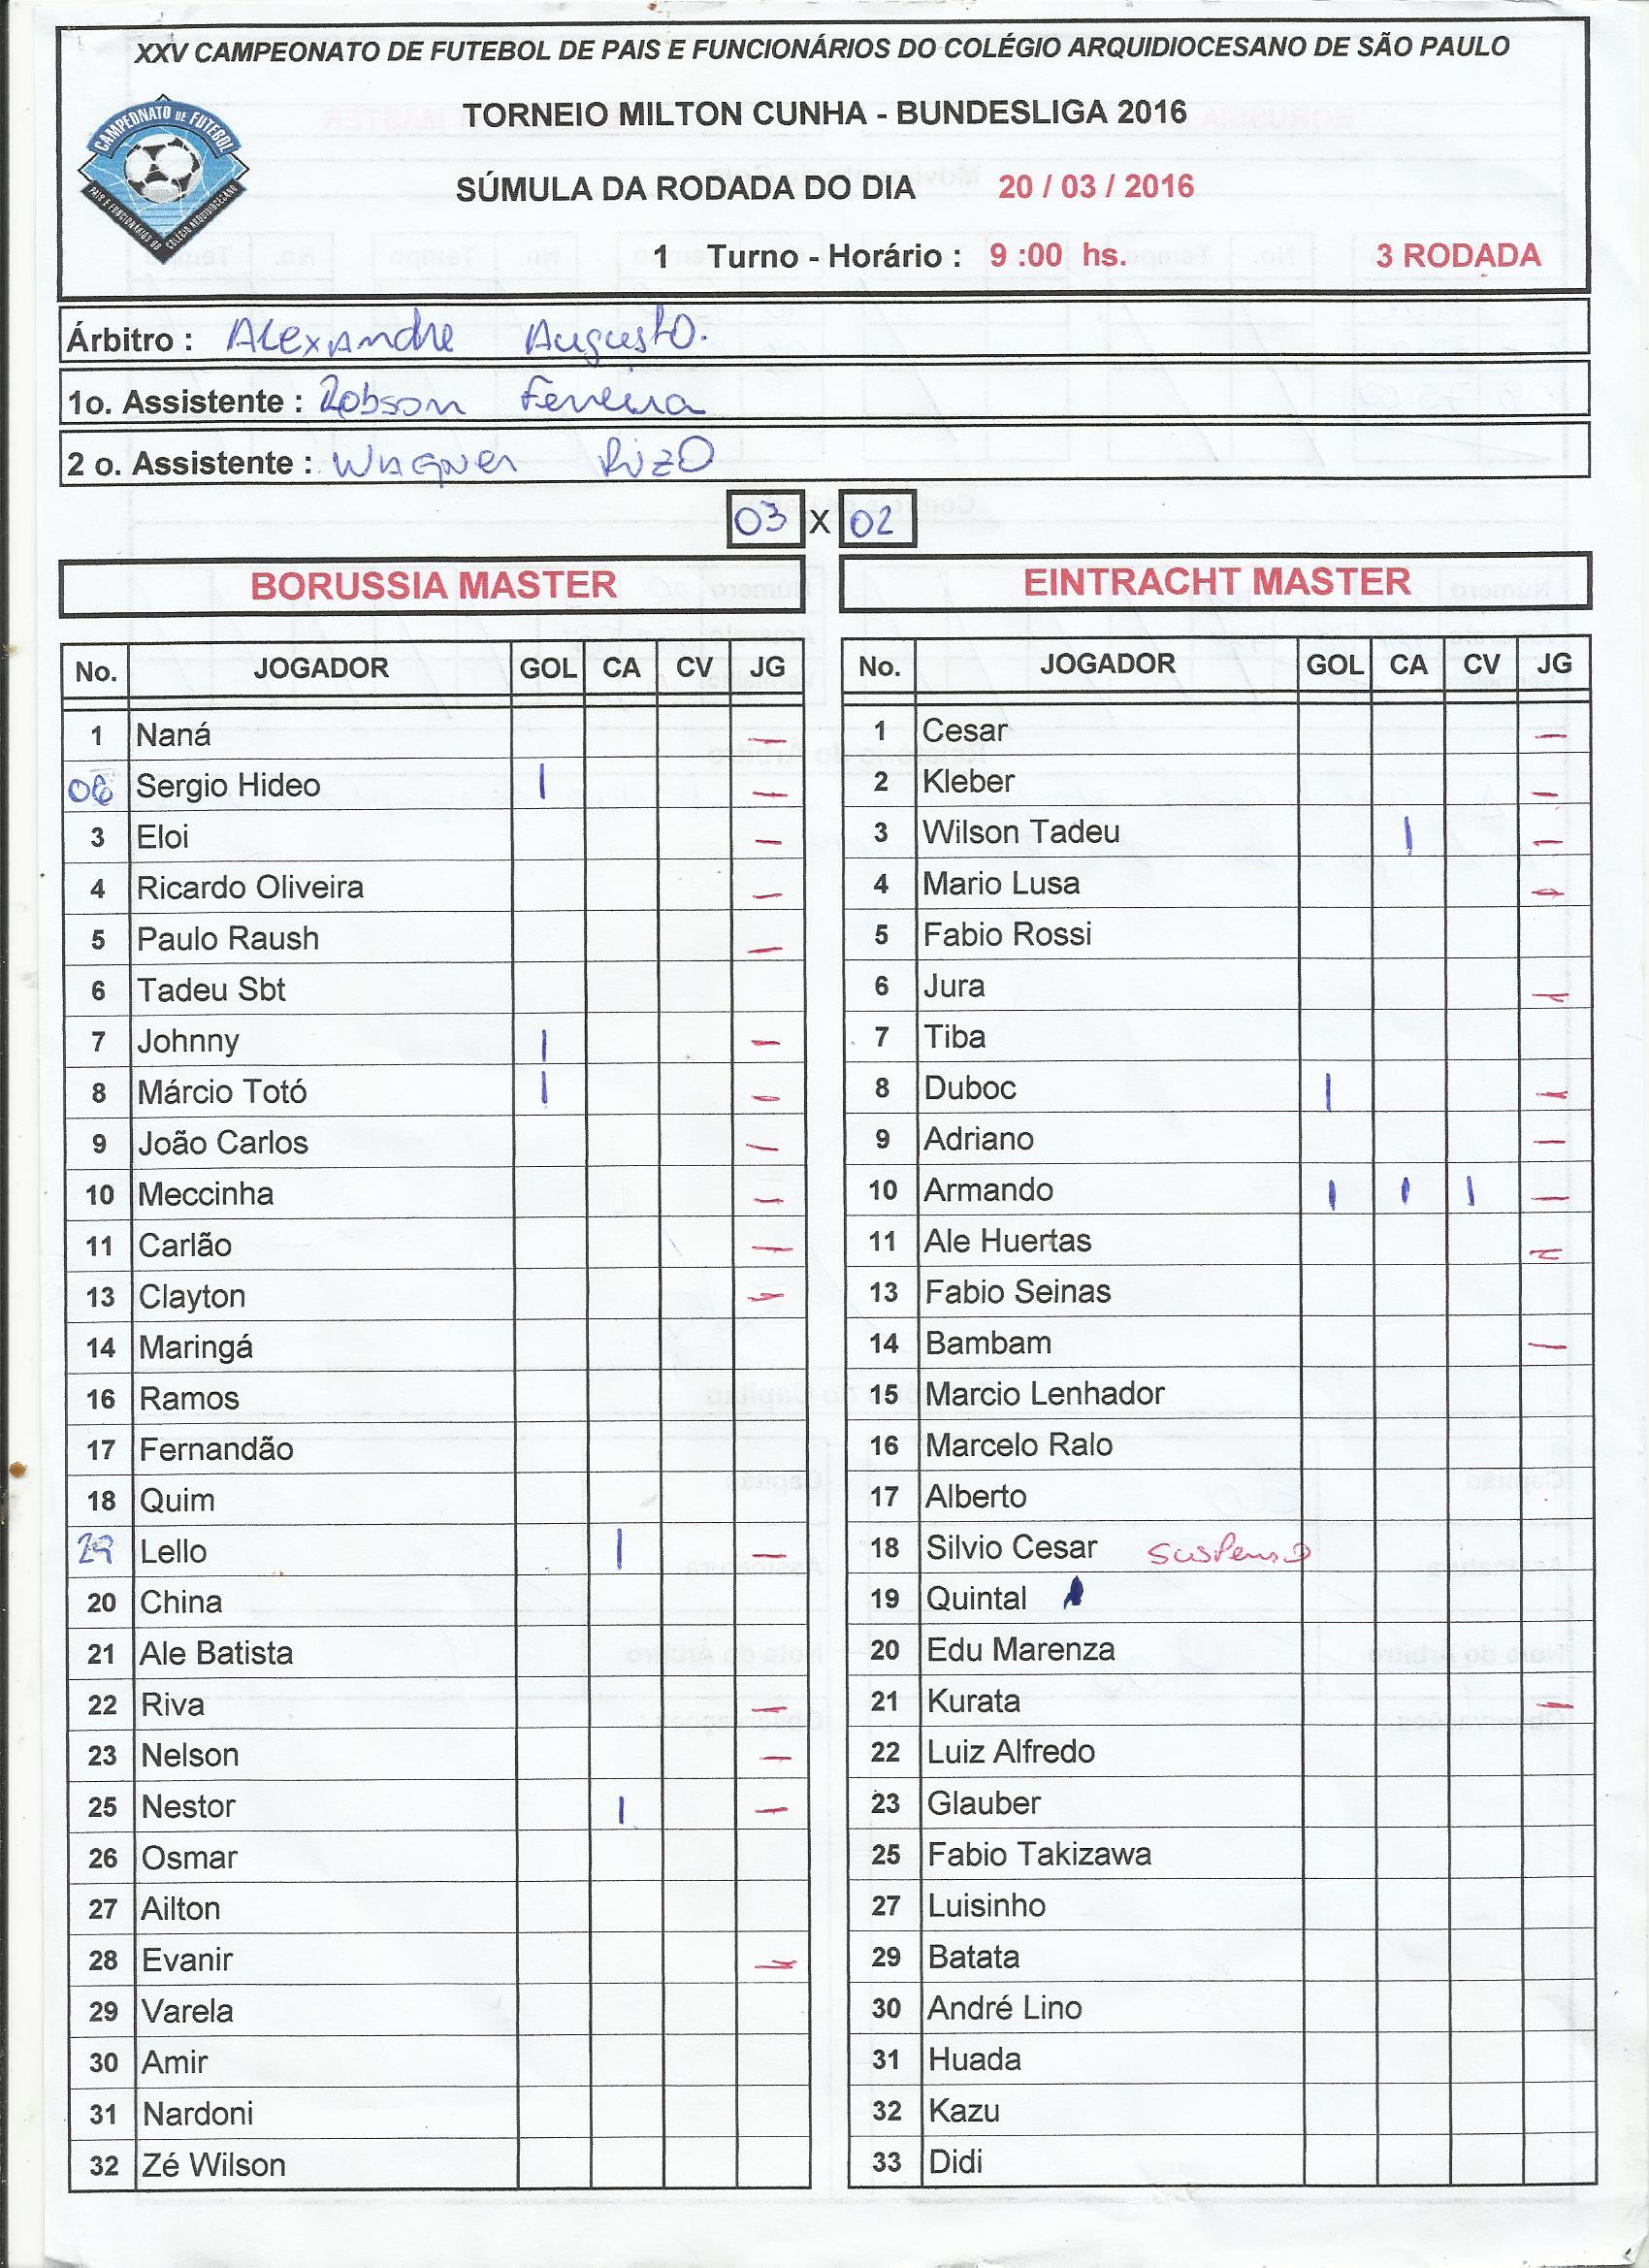 XXV CAMPEONATO DE FUTEBOL DE PAIS E FUNCIONÁRIOS DO COLÉGIO ARQUIDIOCESANO DE SÃO PAULO
CAMPEONATO DE FUTEBOL
PAIS E FUNCIONÁRIOS DO COLÉGIO ARQUIDIOCESANO
TORNEIO MILTON CUNHA - BUNDESLIGA 2016
SÚMULA DA RODADA DO DIA 20 / 03 / 2016
1 Turno - Horário : 9 :00 hs. 3 RODADA
Árbitro : Alexandre Augusto.
1o. Assistente : Robson Ferreira
2 o. Assistente : Wagner Rizo
03 X 02
BORUSSIA MASTER EINTRACHT MASTER
No. JOGADOR GOL CA CV JG No. JOGADOR GOL CA CV JG
1 Naná — 1 Cesar —
06 Sergio Hideo | — 2 Kleber —
3 Eloi — 3 Wilson Tadeu | —
4 Ricardo Oliveira — 4 Mario Lusa —
5 Paulo Raush — 5 Fabio Rossi
6 Tadeu Sbt 6 Jura —
7 Johnny | — 7 Tiba
8 Márcio Totó | — 8 Duboc | —
9 João Carlos — 9 Adriano —
10 Meccinha — 10 Armando | | | —
11 Carlão — 11 Ale Huertas —
13 Clayton — 13 Fabio Seinas
14 Maringá 14 Bambam —
16 Ramos 15 Marcio Lenhador
17 Fernandão 16 Marcelo Ralo
18 Quim 17 Alberto
29 Lello | — 18 Silvio Cesar Suspenso
20 China 19 Quintal
21 Ale Batista 20 Edu Marenza
22 Riva — 21 Kurata —
23 Nelson — 22 Luiz Alfredo
25 Nestor | — 23 Glauber
26 Osmar 25 Fabio Takizawa
27 Ailton 27 Luisinho
28 Evanir — 29 Batata
29 Varela 30 André Lino
30 Amir 31 Huada
31 Nardoni 32 Kazu
32 Zé Wilson 33 Didi